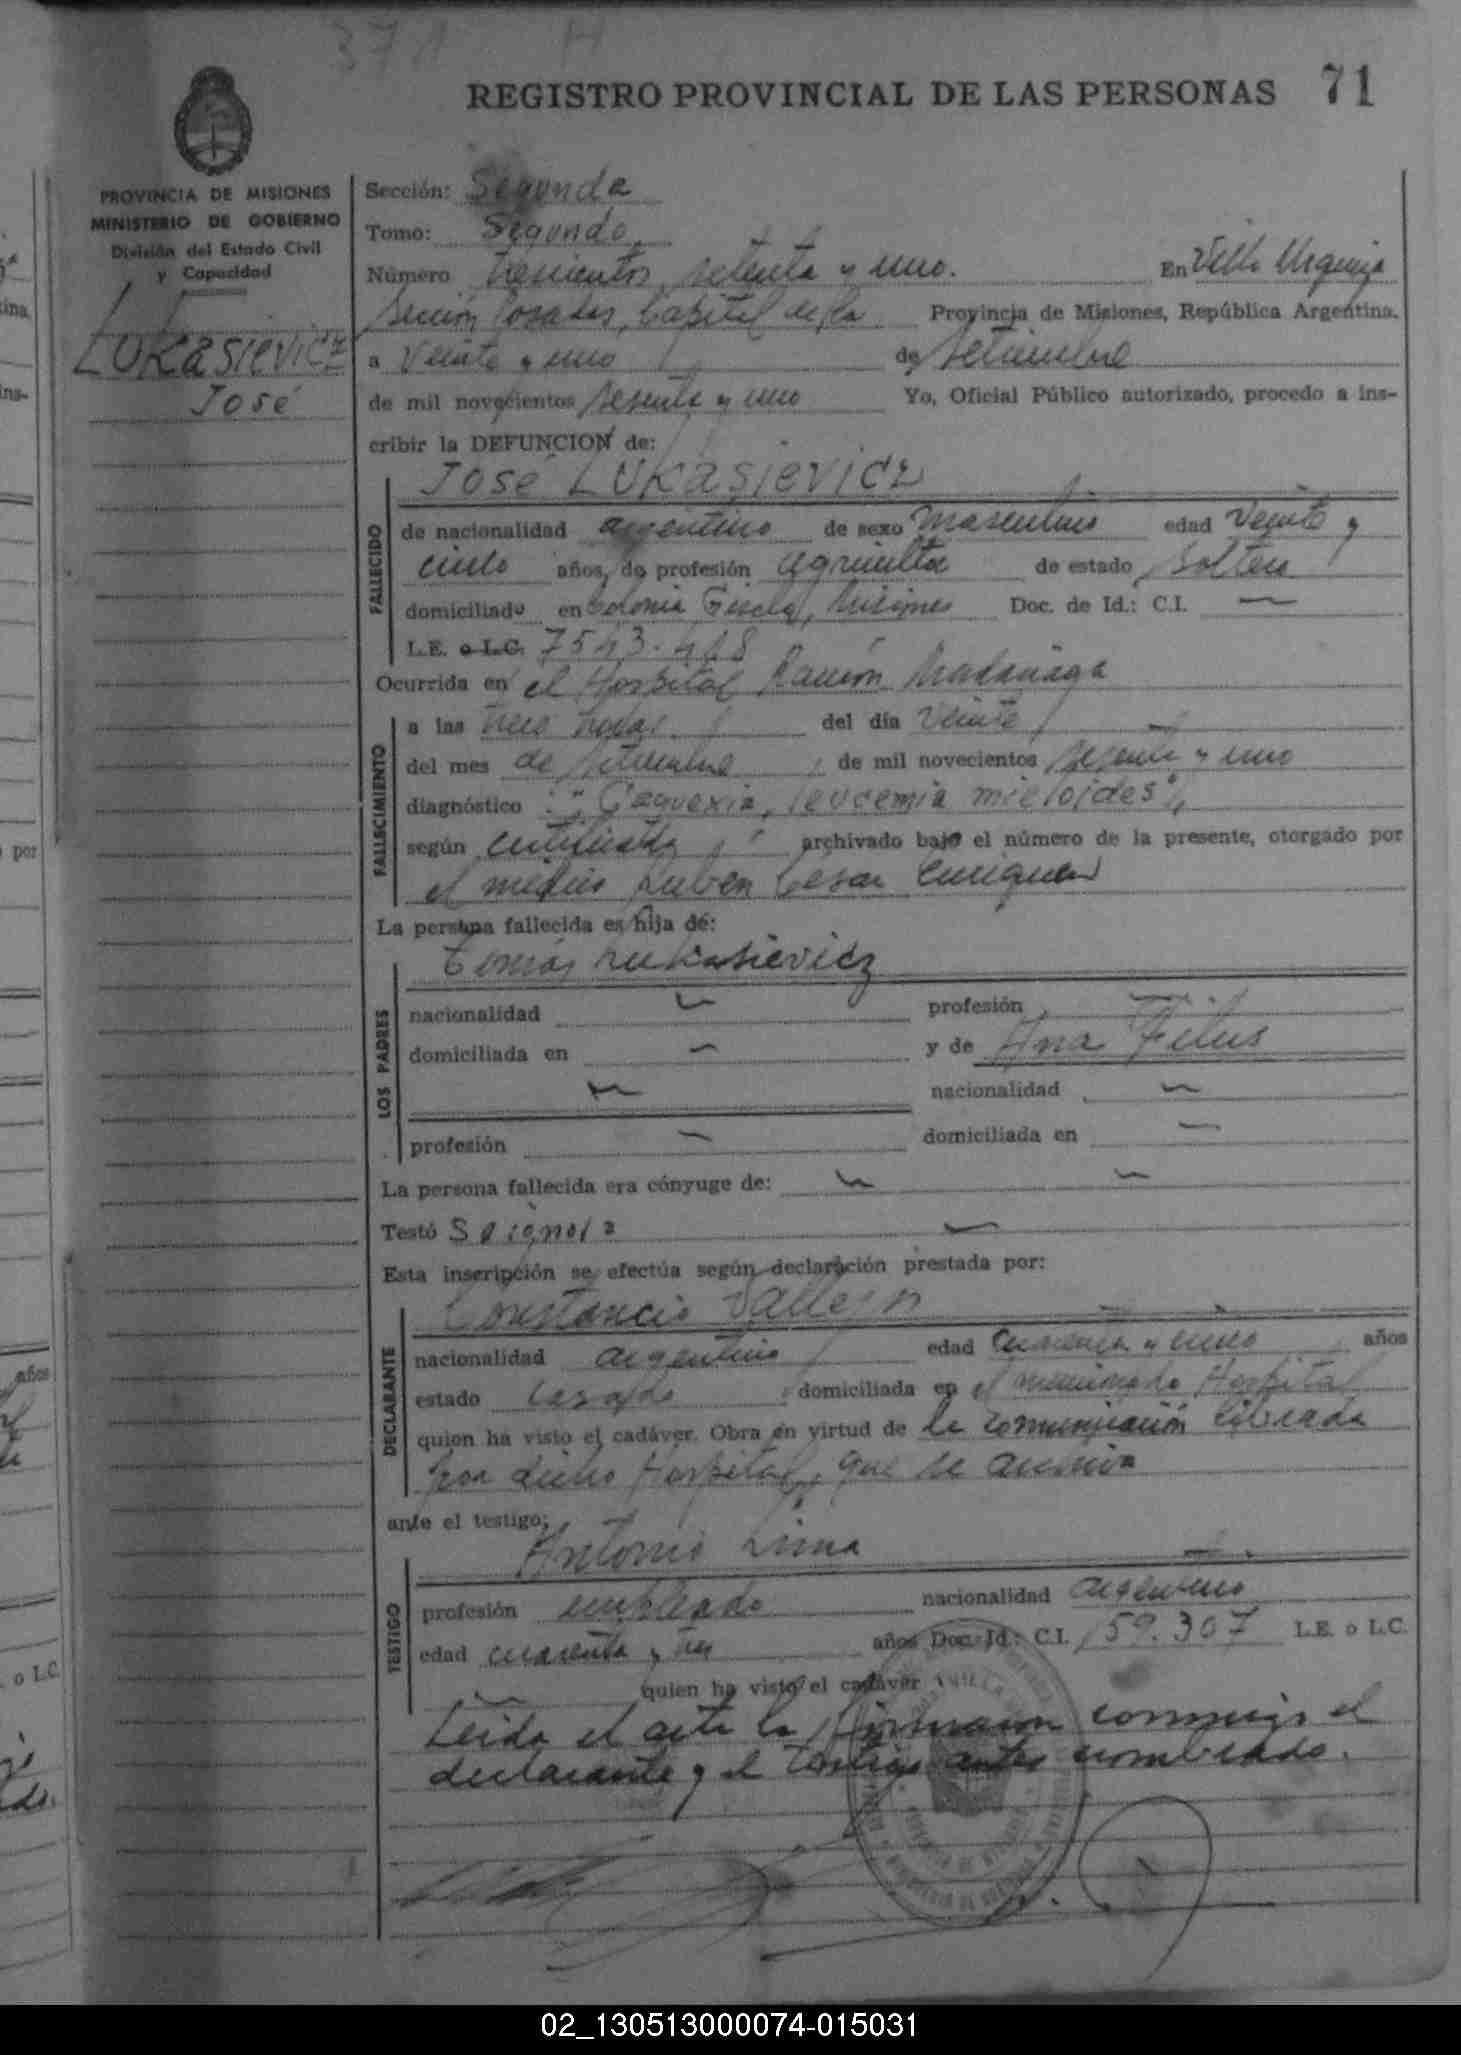 371 H
REGISTRO PROVINCIAL DE LAS PERSONAS 71
PROVINCIA DE MISIONES
MINISTERIO DE GOBIERNO
División del Estado Civil
y Capacidad
LUKASIEVICZ
José
Sección: Segunda
Tomo: Segundo
Número trescientos setenta y uno. En Villa Urquiza
Sección Posadas, Capital de la Provincia de Misiones, República Argentina.
a Veinte y uno de setiembre
de mil novecientos sesenta y uno Yo, Oficial Público autorizado, procedo a ins-
cribir la DEFUNCION de:
José LUKASIEVICZ
FALLECIDO
de nacionalidad argentino de sexo masculino edad veinte y
cinco años, de profesión agricultor de estado soltero
domiciliado en Colonia Misiones Doc. de Id.: C.I. —
L.E. o L.C. 7543.418
Ocurrida en el Hospital Ramón Madariaga
FALLECIMIENTO
a las tres horas del día veinte
del mes de setiembre de mil novecientos sesenta y uno
diagnóstico : "Caquexia, leucemia mieloides",
según certificado archivado bajo el número de la presente, otorgado por
el médico Ruben Cesar Enriquez
La persona fallecida es hija de:
LOS PADRES
Tomás Lukasievicz
nacionalidad — profesión —
domiciliada en — y de Ana Filus
— nacionalidad —
profesión — domiciliada en —
La persona fallecida era cónyuge de: — —
Testó —
Esta inscripción se efectúa según declaración prestada por:
DECLARANTE
Constancio Vallejo
nacionalidad argentino edad cuarenta y cinco años
estado casado domiciliada en el mencionado Hospital
quien ha visto el cadáver. Obra en virtud de la comunicación librada
por dicho Hospital, que se archiva
ante el testigo;
TESTIGO
Antonio Lima
profesión empleado nacionalidad argentino
edad cuarenta y tres años Doc. Id.: C.I. 59.307 L.E. o L.C.
— quien ha visto el cadáver
Leída el acta la firmaron conmigo el
declarante y el testigo antes nombrado.
02_130513000074-015031